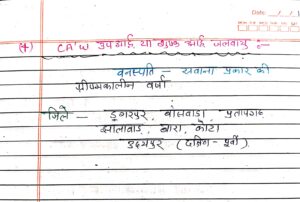 Date
(4) CA'w उपआर्द्र या शुष्क आर्द्र जलवायु :-
वनस्पति - सवाना प्रकार की
ग्रीष्मकालीन वर्षा
जिले - डूंगरपुर, बांसवाडा, प्रतापगढ
झालावाड, बारा, कोटा
उदयपुर (दक्षिण - पूर्वी)